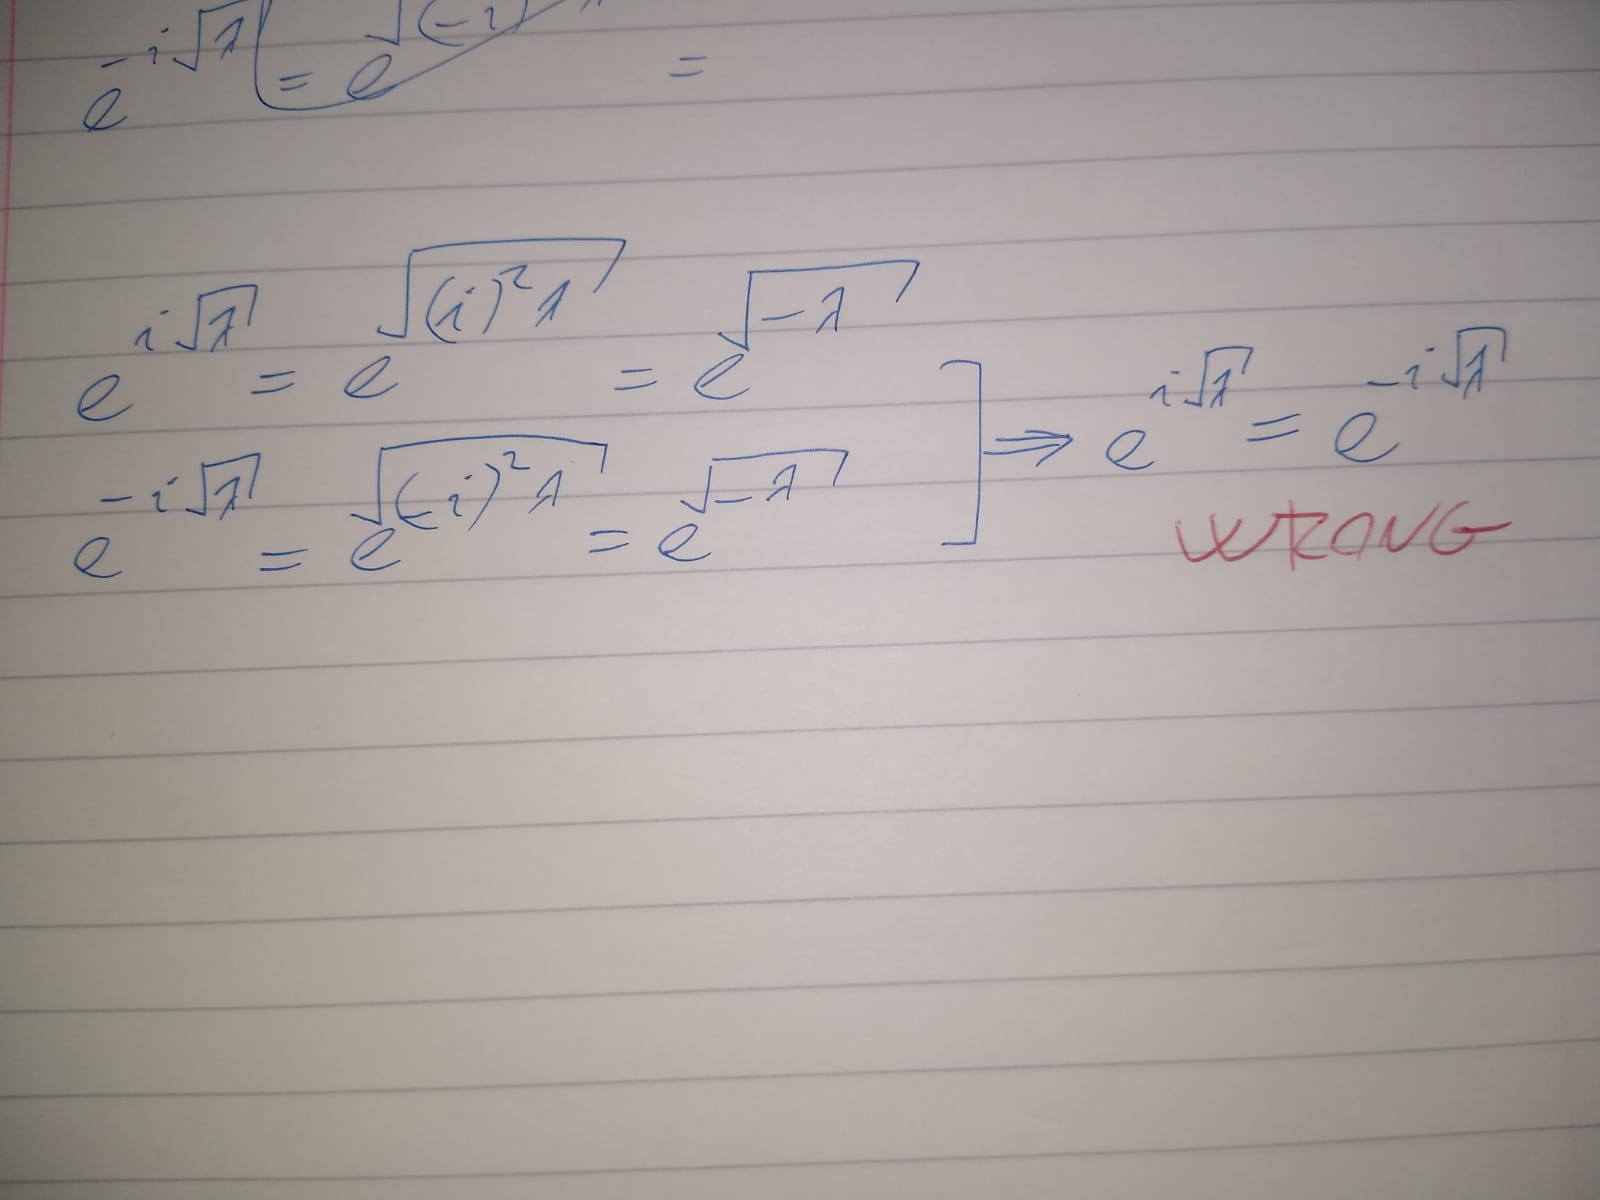 e^{-i√λ} = e^{√(-i)} =
e^{i√λ} = e^{√((i)²λ)} = e^{√(-λ)}
e^{-i√λ} = e^{√((-i)²λ)} = e^{√(-λ)}
] ⇒ e^{i√λ} = e^{-i√λ}
WRONG